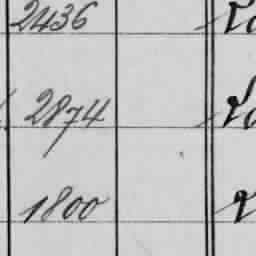 2436
2874
1800